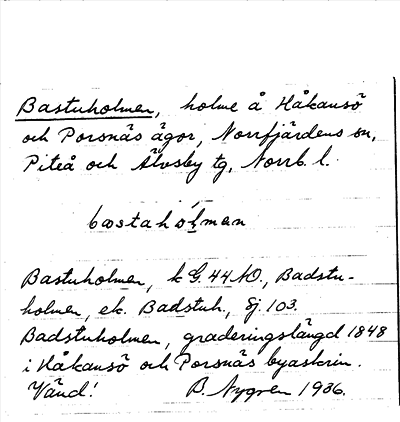 Bastuholmen, holme å Håkansö
och Porsnäs ägor, Norrfjärdens sn,
Piteå och Älvsby tg, Norrb. l.
bastahólman
Bastuholmen, k G. 44 NO., Badstu-
holmen, ek. Badstuh., Sj. 103.
Badstuholmen, graderingslängd 1848
i Håkansö och Porsnäs byaskrin.
Vänd! B. Nygren 1936.